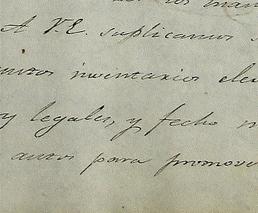 A V.E. suplicamos
inventario
y legales, y fecho
autos para promover